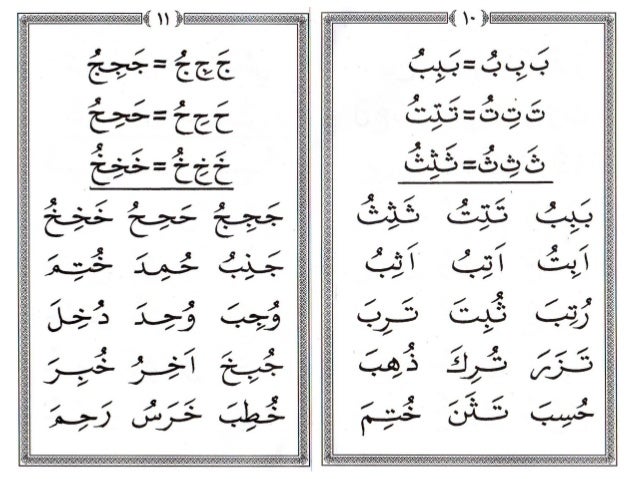 ١٠
بَ بِ بُ = بَبِبُ
تَ تِ تُ = تَتِتُ
ثَ ثِ ثُ = ثَثِثُ
بَبِبُ تَتِتُ ثَثِثُ
اَبِتُ اَتِبُ اَثِبُ
رُتِبَ ثُبِتَ تَرِبَ
تَزَرَ تُرِكَ ذُهِبَ
حُسِبَ تَثَنَ خُتِمَ
١١
جَ جِ جُ = جَجِجُ
حَ حِ حُ = حَحِحُ
خَ خِ خُ = خَخِخُ
جَجِجُ حَحِحُ خَخِخُ
جَنِبُ حُمِدَ خُتِمَ
وُجِبَ وُحِدَ دُخِلَ
جُبِخَ اَخِرُ خُبِرَ
خُطِبَ خَرَسُ رَحِمَ